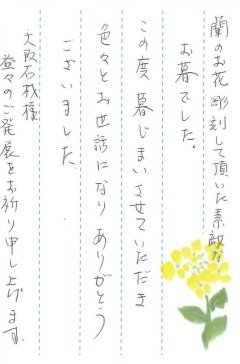 蘭のお花彫刻して頂いた素敵な
お墓でした。
この度墓じまいさせていただき
色々とお世話になりありがとう
ございました。
大阪石材様
益々のご発展をお祈り申し上げます。